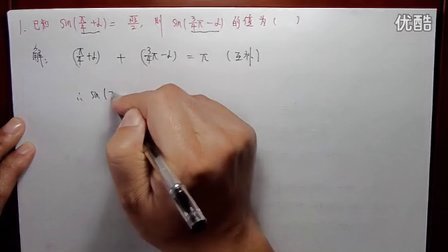 1. 已知 sin(π/4+α)=√3/2, 则 sin(3/4π-α) 的值为 ( )
解: (π/4+α) + (3/4π-α) = π (互补)
∴ sin(
优酷